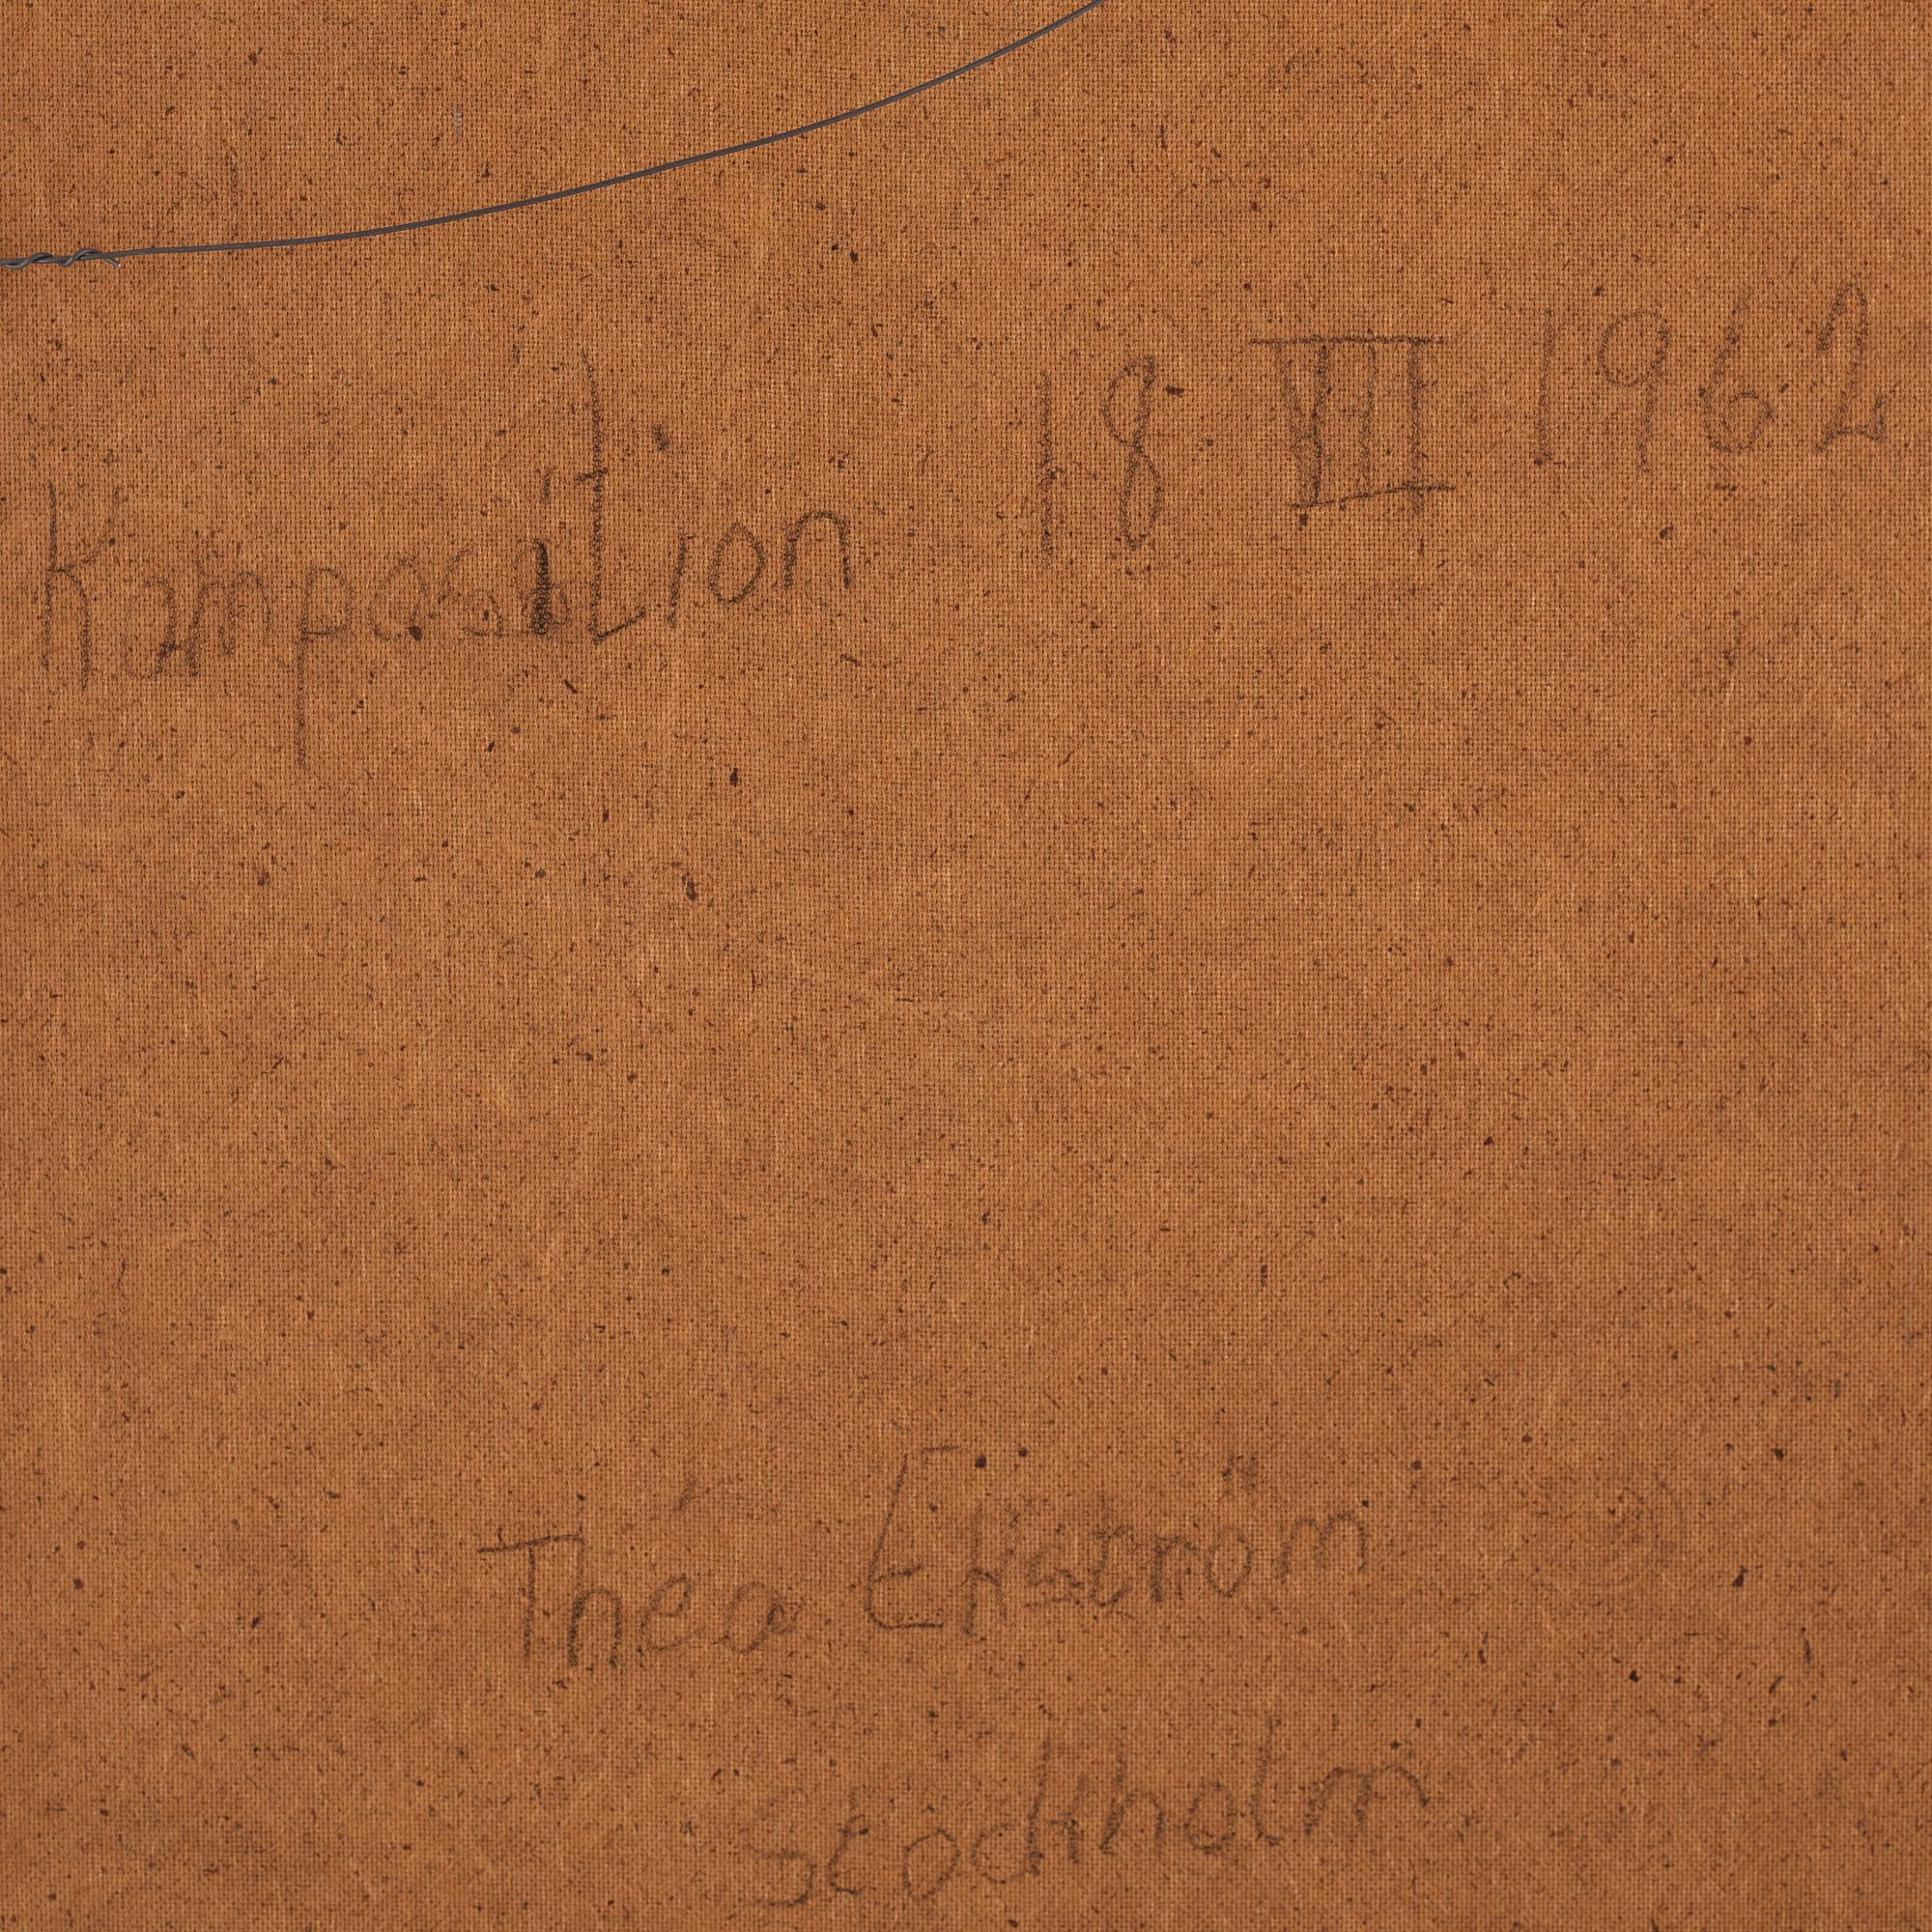 Komposition 18 VII 1962
Théa Ekström
Stockholm